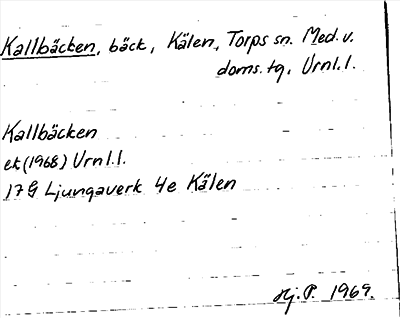 Kallbäcken, bäck, Kälen, Torps sn. Med. v.
doms. tg, Vrnl. l.
Kallbäcken
ek (1968) Vrnl. l.
17 G Ljungaverk 4e Kälen
Hj. P. 1969.